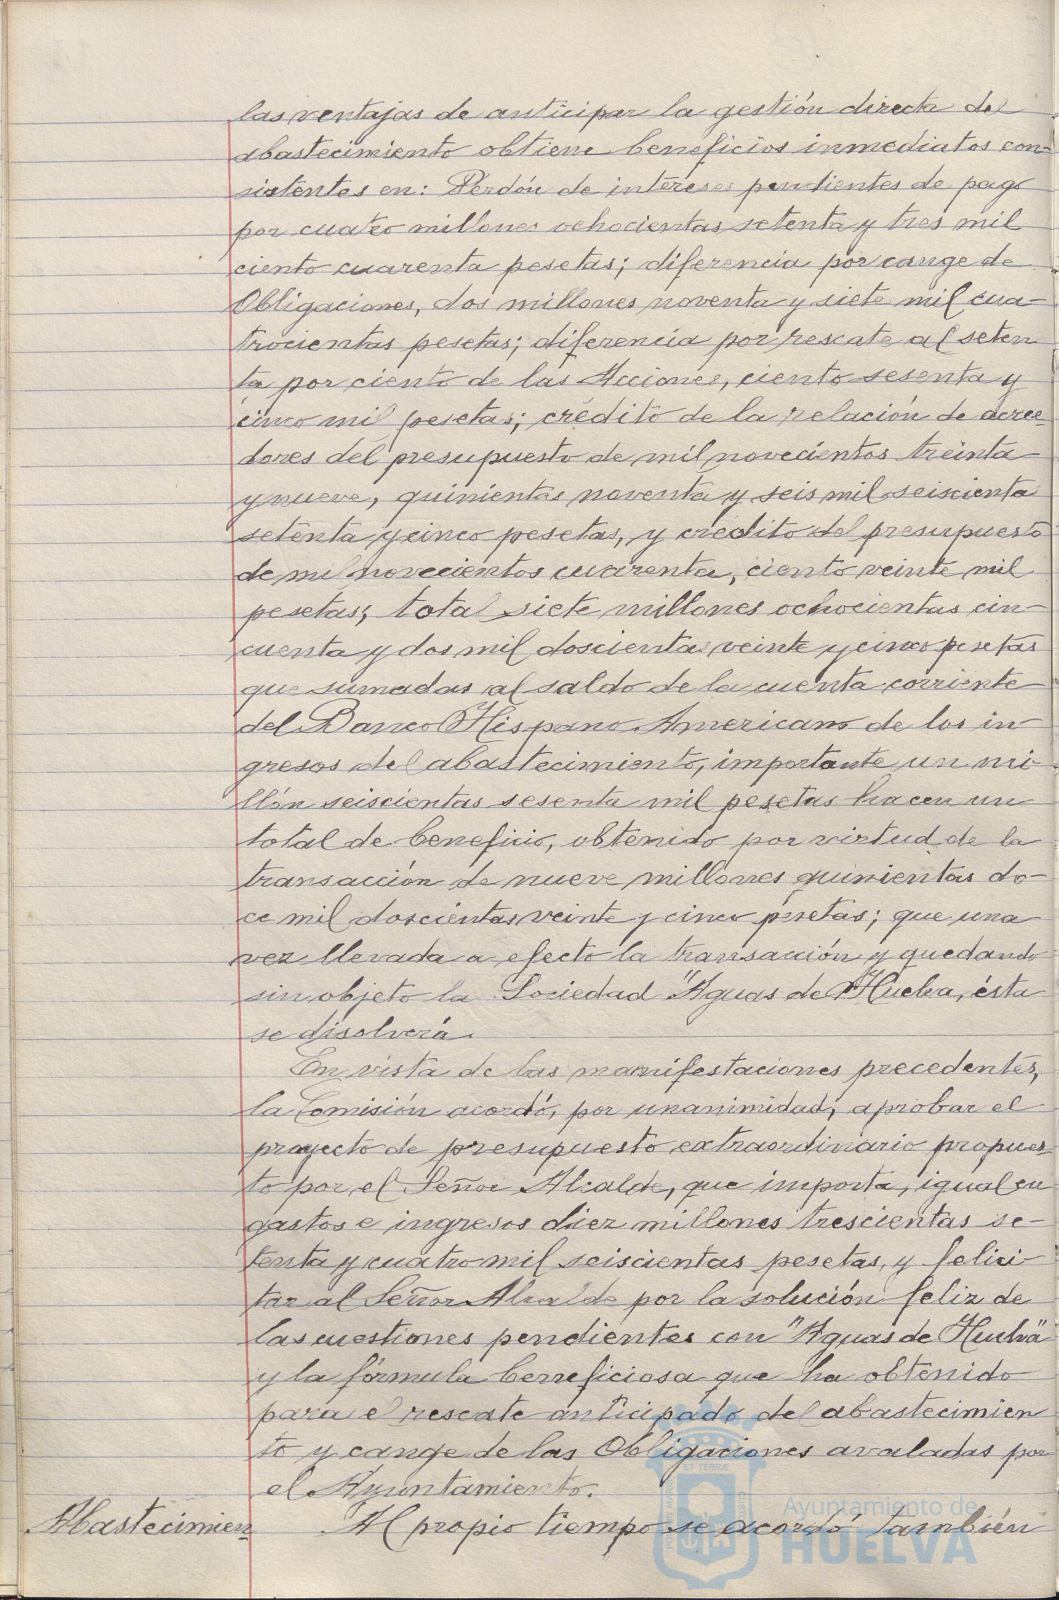 las ventajas de anticipar la gestión directa del
abastecimiento obtiene beneficios inmediatos con=
sistentes en: Perdón de intereses pendientes de pago
por cuatro millones ochocientas setenta y tres mil
ciento cuarenta pesetas; diferencia por cange de
Obligaciones, dos millones noventa y siete mil cua-
trocientas pesetas; diferencia por rescate al seten
ta por ciento de las Acciones, ciento sesenta y
cinco mil pesetas; crédito de la relación de acree-
dores del presupuesto de mil novecientos treinta
y nueve, quinientas noventa y seis mil seiscientas
setenta y cinco pesetas, y crédito del presupuesto
de mil novecientos cuarenta, ciento veinte mil
pesetas; total siete millones ochocientas cin-
cuenta y dos mil doscientas veinte y cinco pesetas
que sumadas al saldo de la cuenta corriente
del Banco Hispano Americano de los in-
gresos del abastecimiento, importante un mi-
llón seiscientas sesenta mil pesetas hacen un
total de beneficio, obtenido por virtud de la
transacción de nueve millones quinientas do-
ce mil doscientas veinte y cinco pesetas; que una
vez llevada a efecto la transacción y quedando
sin objeto la Sociedad "Aguas de Huelva, ésta
se disolverá.
En vista de las manifestaciones precedentes,
la Comisión acordó, por unanimidad, aprobar el
proyecto de presupuesto extraordinario propues-
to por el Señor Alcalde, que importa, igual en
gastos e ingresos diez millones trescientas se-
tenta y cuatro mil seiscientas pesetas, y felici-
tar al Señor Alcalde por la solución feliz de
las cuestiones pendientes con "Aguas de Huelva"
y la fórmula beneficiosa que ha obtenido
para el rescate anticipado del abastecimien
to y cange de las Obligaciones avaladas por
el Ayuntamiento.
Abastecimien Al propio tiempo se acordó también
Ayuntamiento de
HUELVA